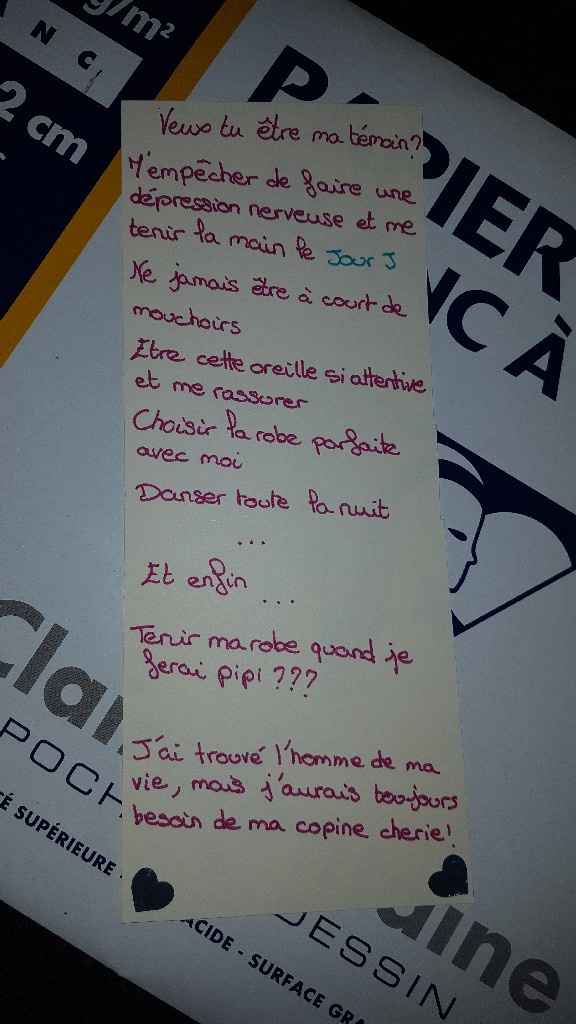 g/m²
ANC
2 cm
PAPIER
NC À
Veux tu être ma témoin?
M'empêcher de faire une
dépression nerveuse et me
tenir la main le Jour J
Ne jamais être à court de
mouchoirs
Etre cette oreille si attentive
et me rassurer
Choisir la robe parfaite
avec moi
Danser toute la nuit
...
Et enfin
...
Tenir ma robe quand je
ferai pipi ???
J'ai trouvé l'homme de ma
vie, mais j'aurais toujours
besoin de ma copine cherie!
Clai
aine
POCH
DESSIN
TÉ SUPÉRIEURE -
ACIDE - SURFACE GRA